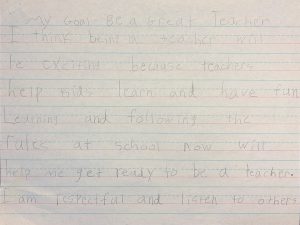 My Goal Be a Great Teacher
I think being a teacher will
be exciting because teachers
help kids learn and have fun
Learning and following the
rules at school now will
help me get ready to be a teacher.
I am respectful and listen to others